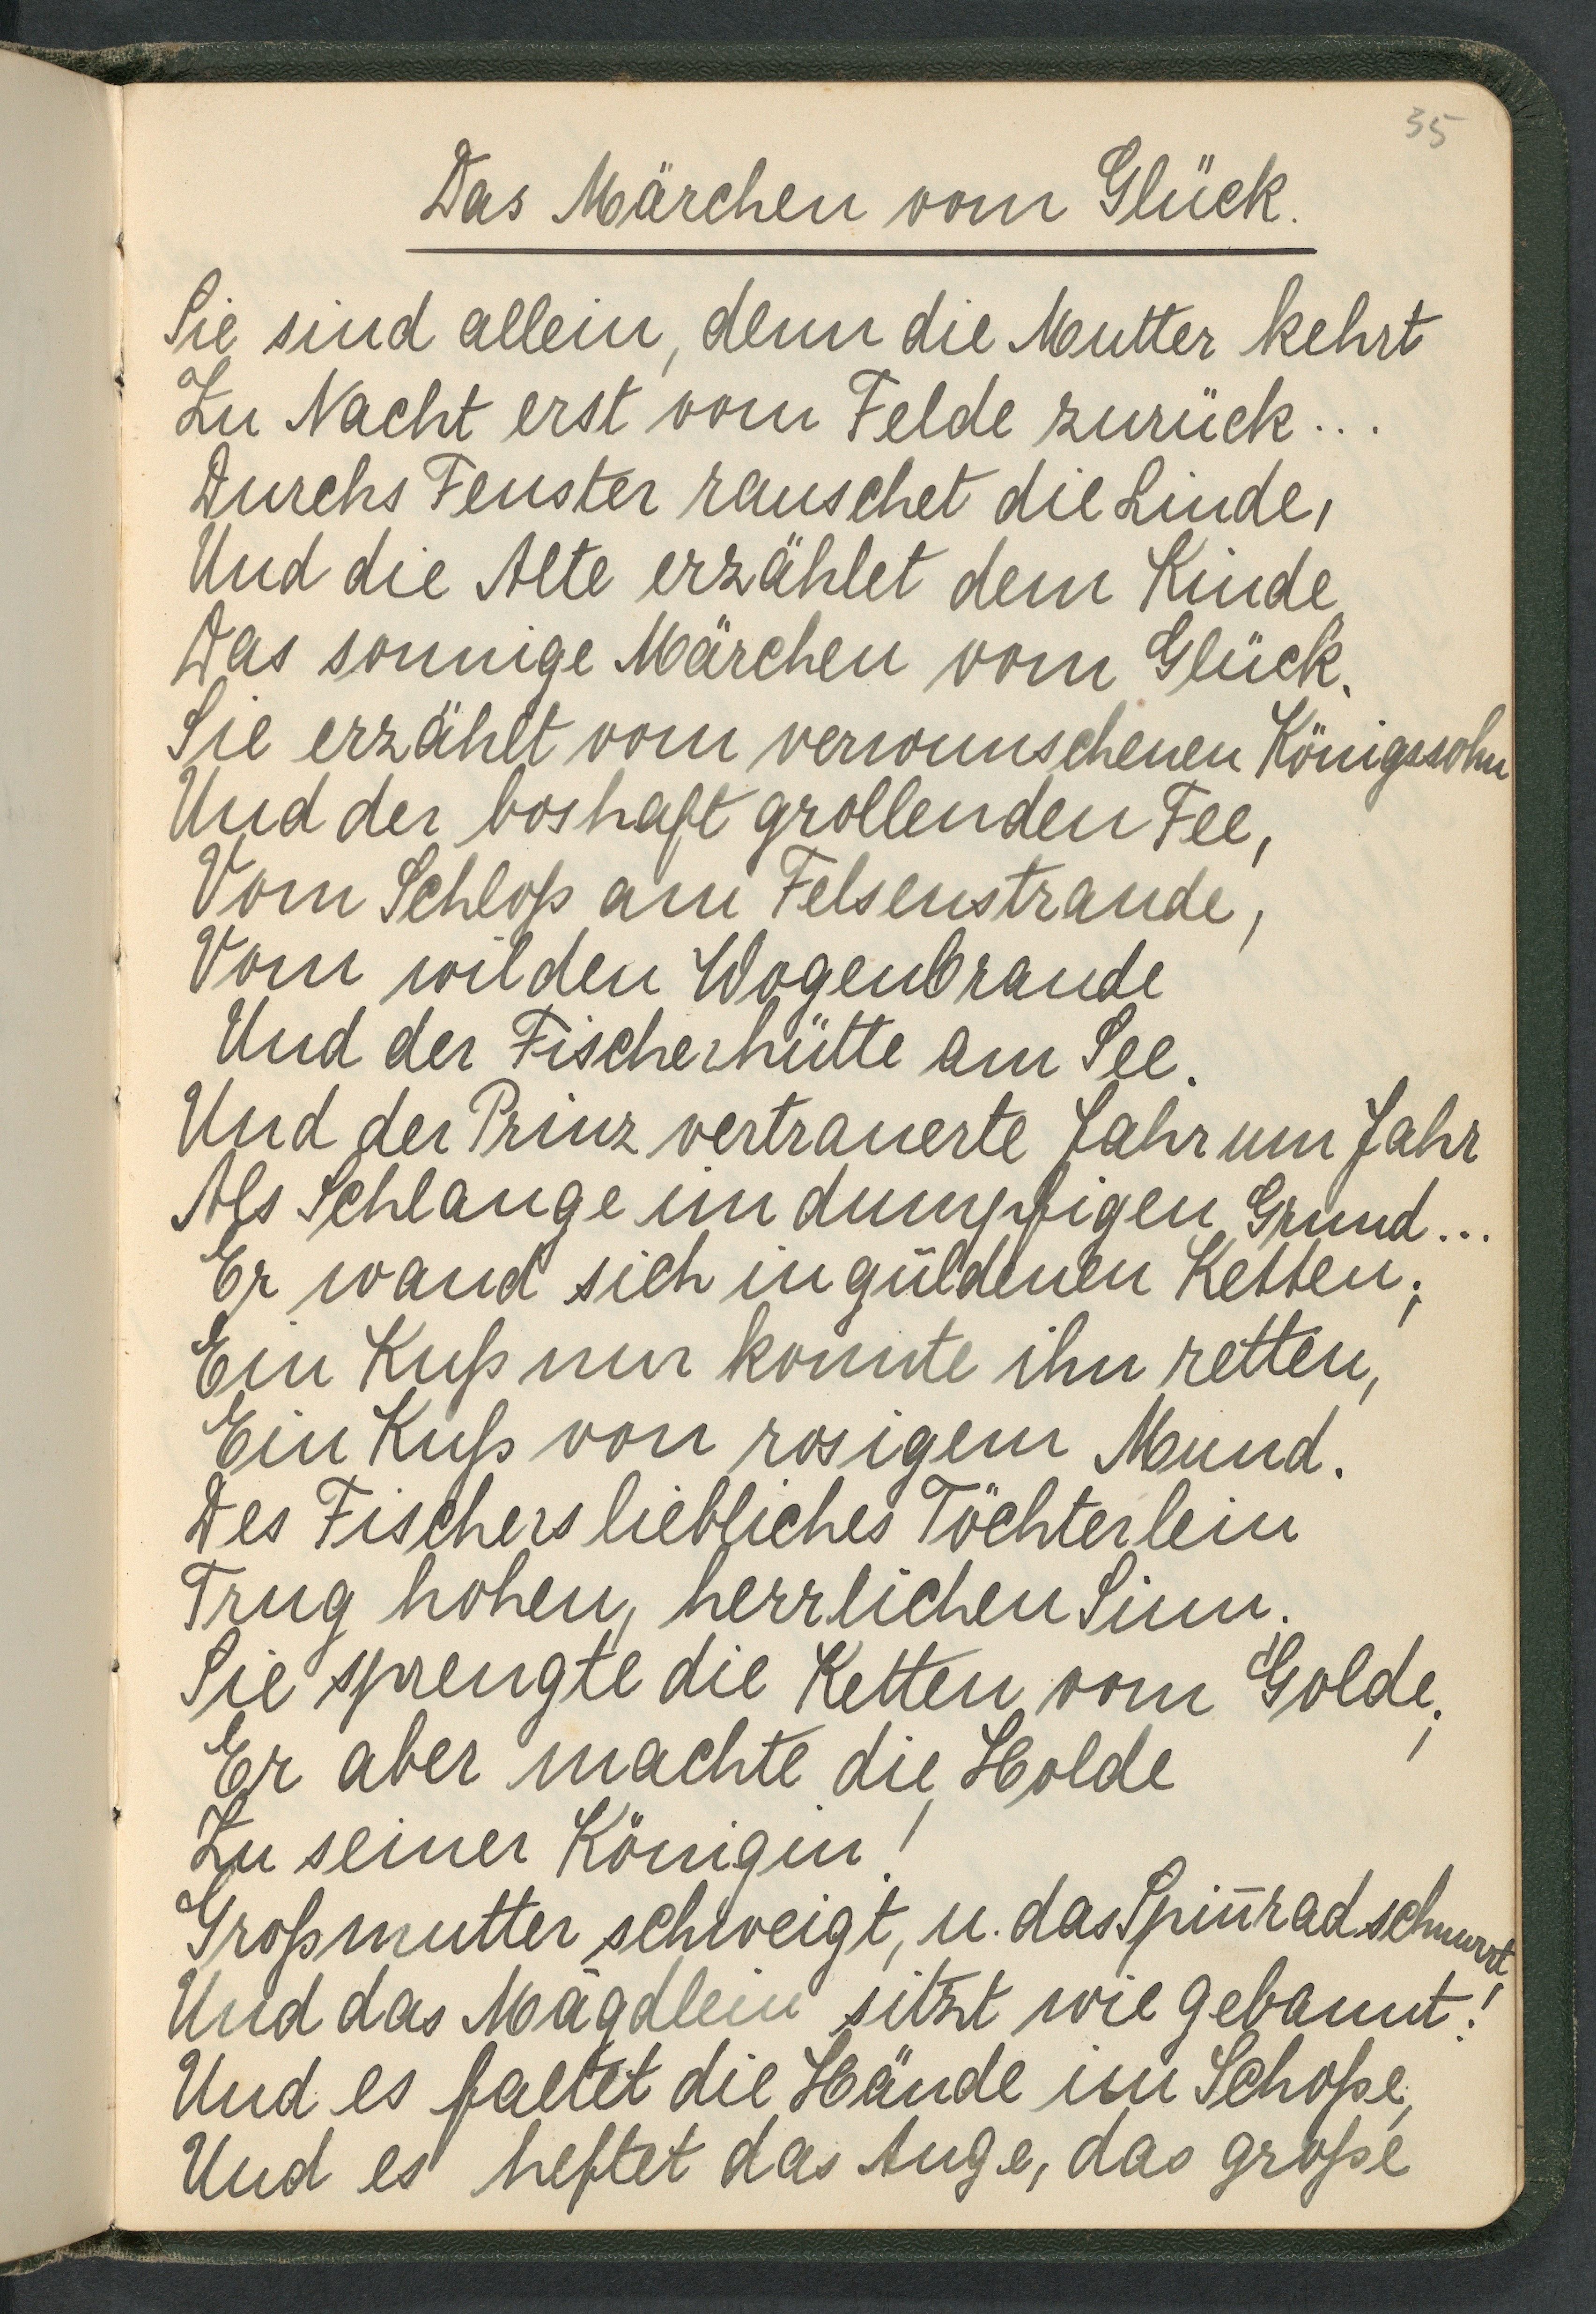 35
Das Märchen vom Glück.
Sie sind allein, denn die Mutter kehrt
Zu Nacht erst vom Felde zurück...
Durchs Fenster rauschet die Linde,
Und die Alte erzählet dem Kinde
Das sonnige Märchen vom Glück.
Sie erzählt vom verwunschenen Königssohn
Und der boshaft grollenden Fee,
Vom Schloß am Felsenstrande,
Vom wilden Wogenbrande
Und der Fischerhütte am See.
Und der Prinz vertrauerte Jahr um Jahr
Als Schlange im dumpfigen Grund...
Er wand sich in güldenen Ketten;
Ein Kuß nur konnte ihn retten,
Ein Kuß von rosigem Mund.
Des Fischers liebliches Töchterlein
Trug hohen, herrlichen Sinn.
Sie sprengte die Ketten vom Golde;
Er aber machte die Holde
Zu seiner Königin!
Großmutter schweigt, u. das Spin̄rad schnurrt
Und das Mägdlein sitzt wie gebannt!
Und es faltet die Hände im Schoße,
Und es heftet das Auge, das große